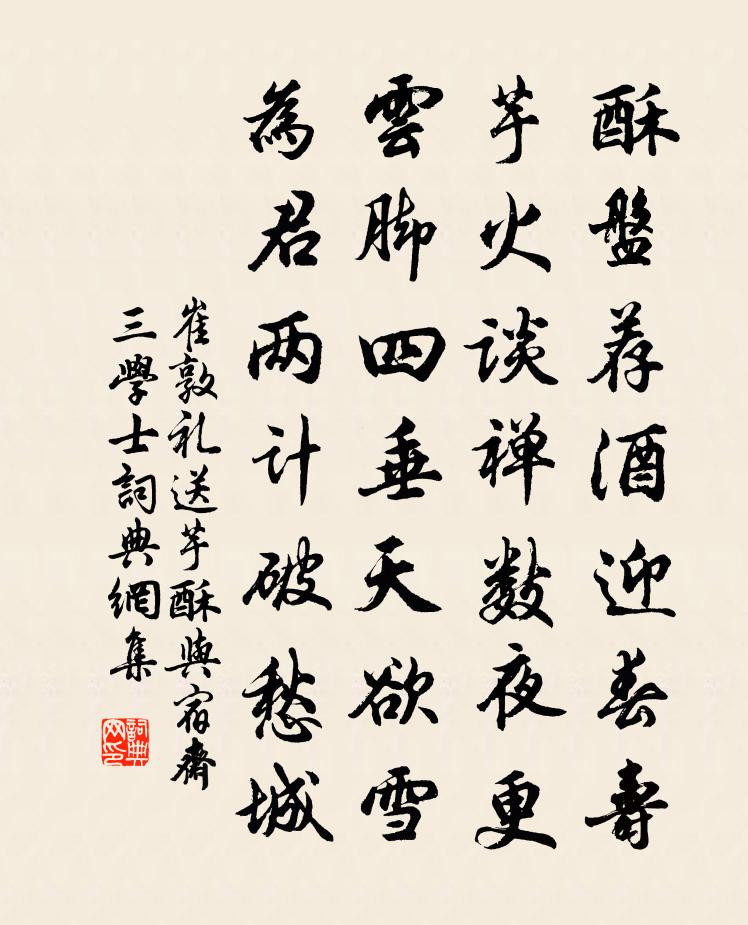 酥盤荐酒迎春壽
芋火談禅数夜更
雲脚四垂天欲雪
為君两计破愁城
崔敦礼送芋酥與宿齋
三學士詞典網集
詞典網印